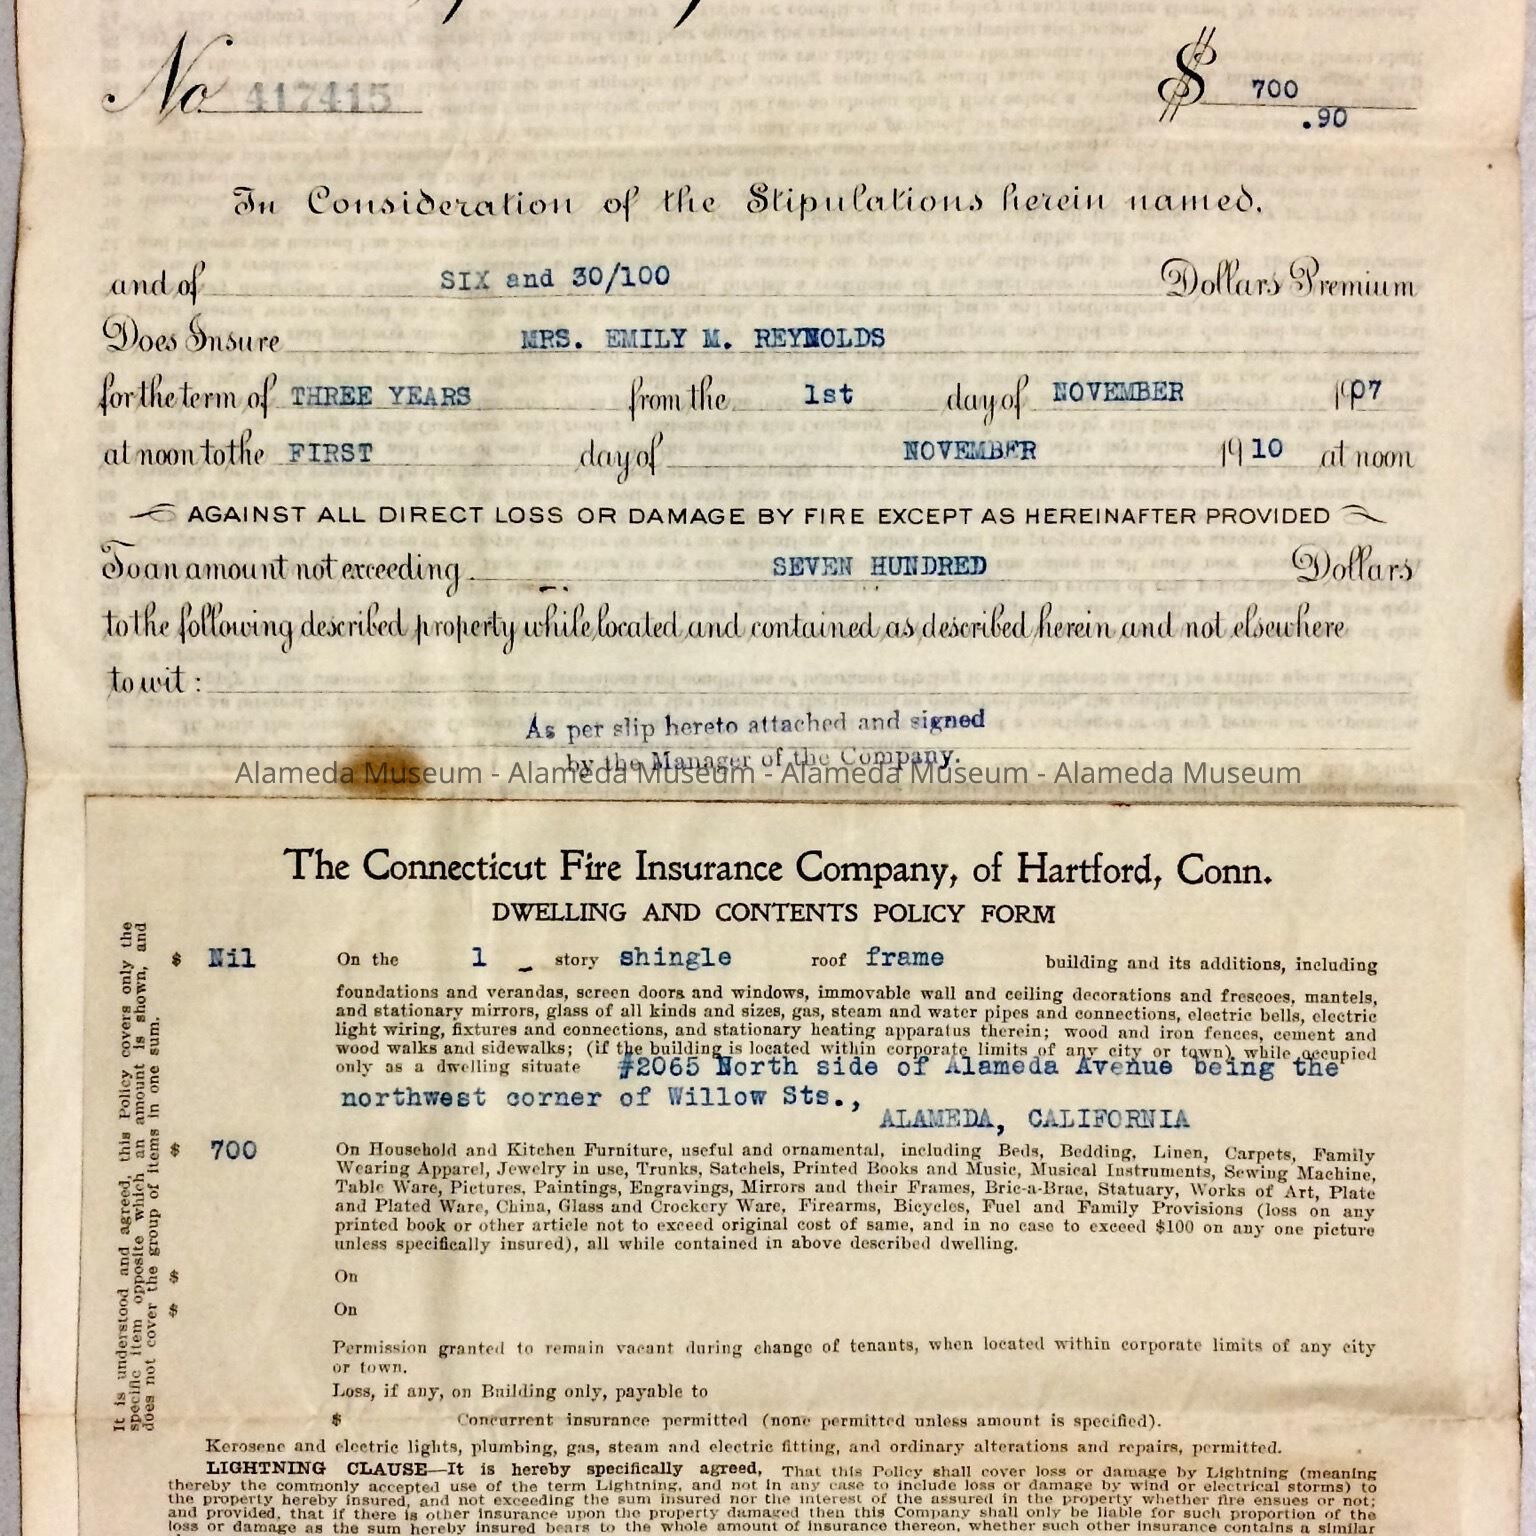 No 417415
$ 700
.90
In Consideration of the Stipulations herein named.
and of SIX and 30/100 Dollars Premium
Does Insure MRS. EMILY M. REYNOLDS
for the term of THREE YEARS from the 1st day of NOVEMBER 1907
at noon to the FIRST day of NOVEMBER 1910 at noon
AGAINST ALL DIRECT LOSS OR DAMAGE BY FIRE EXCEPT AS HEREINAFTER PROVIDED
To an amount not exceeding SEVEN HUNDRED Dollars
to the following described property while located and contained as described herein and not elsewhere
to wit:
As per slip hereto attached and signed
by the Manager of the Company.
Alameda Museum - Alameda Museum - Alameda Museum - Alameda Museum
The Connecticut Fire Insurance Company, of Hartford, Conn.
DWELLING AND CONTENTS POLICY FORM
It is understood and agreed, this Policy covers only the
specific item opposite which an amount is shown, and
does not cover the group of items in one sum.
$ Nil On the 1 story shingle roof frame building and its additions, including
foundations and verandas, screen doors and windows, immovable wall and ceiling decorations and frescoes, mantels,
and stationary mirrors, glass of all kinds and sizes, gas, steam and water pipes and connections, electric bells, electric
light wiring, fixtures and connections, and stationary heating apparatus therein; wood and iron fences, cement and
wood walks and sidewalks; (if the building is located within corporate limits of any city or town) while occupied
only as a dwelling situate #2065 North side of Alameda Avenue being the
northwest corner of Willow Sts.,
ALAMEDA, CALIFORNIA
$ 700 On Household and Kitchen Furniture, useful and ornamental, including Beds, Bedding, Linen, Carpets, Family
Wearing Apparel, Jewelry in use, Trunks, Satchels, Printed Books and Music, Musical Instruments, Sewing Machine,
Table Ware, Pictures, Paintings, Engravings, Mirrors and their Frames, Bric-a-Brac, Statuary, Works of Art, Plate
and Plated Ware, China, Glass and Crockery Ware, Firearms, Bicycles, Fuel and Family Provisions (loss on any
printed book or other article not to exceed original cost of same, and in no case to exceed $100 on any one picture
unless specifically insured), all while contained in above described dwelling.
$ On
$ On
Permission granted to remain vacant during change of tenants, when located within corporate limits of any city
or town.
Loss, if any, on Building only, payable to
$ Concurrent insurance permitted (none permitted unless amount is specified).
Kerosene and electric lights, plumbing, gas, steam and electric fitting, and ordinary alterations and repairs, permitted.
LIGHTNING CLAUSE—It is hereby specifically agreed, That this Policy shall cover loss or damage by Lightning (meaning
thereby the commonly accepted use of the term Lightning, and not in any case to include loss or damage by wind or electrical storms) to
the property hereby insured, and not exceeding the sum insured nor the interest of the assured in the property whether fire ensues or not;
and provided, that if there is other insurance upon the property damaged then this Company shall only be liable for such proportion of the
loss or damage as the sum hereby insured bears to the whole amount of insurance thereon, whether such other insurance contains a similar